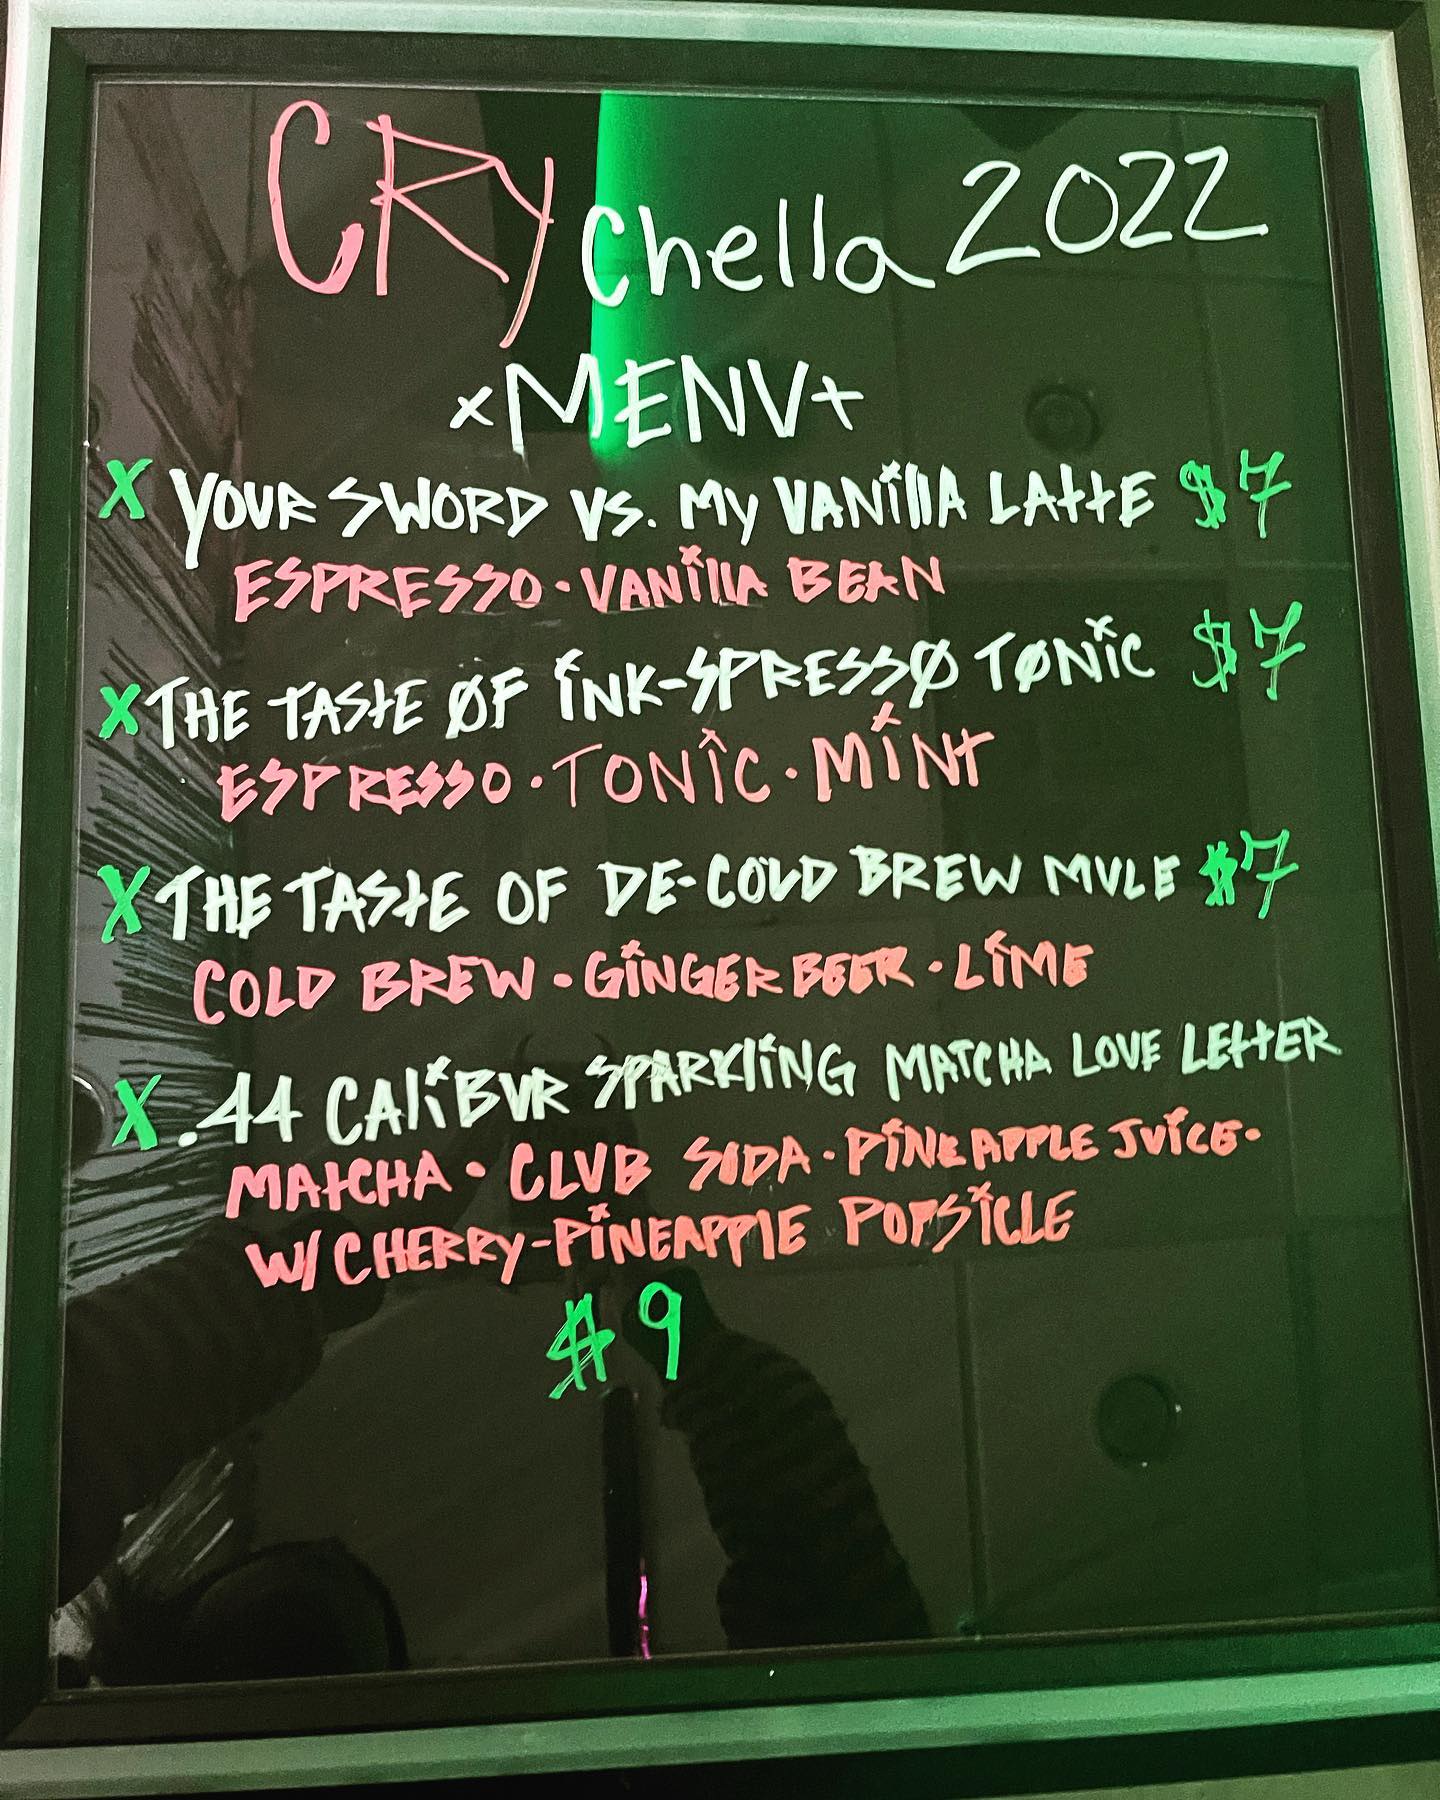 CRY Chella 2022
xMENU+
X YOUR SWORD VS. My VANillA LAttE $7
ESPRESSO · VANillA BEAN
X THE TASTE ØF iNK-SPRESSØ TØNiC $7
ESPRESSO · TONiC · MiNt
X THE TASTE OF DE-COLD BREW MULE $7
COLD BREW · GiNGER BEER · LiME
X .44 CAliBUR SPARKliNG MATCHA LOVE LEttER
MAtCHA · CLUB SODA · PiNEAPPLE JUiCE ·
W/ CHERRy-PiNEAPPlE POPSiCLE
$9